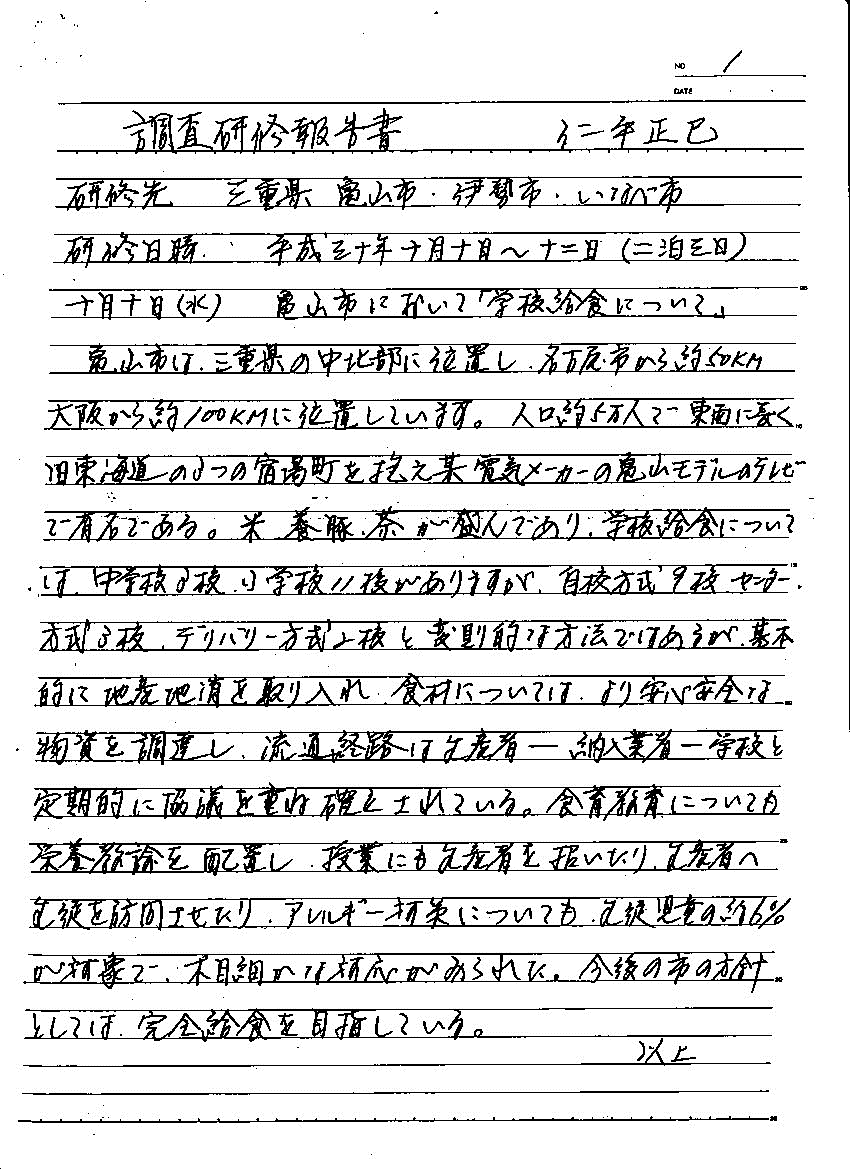 NO 1
DATE
調査研修報告書 仁平正巳
研修先 三重県 亀山市・伊勢市・いなべ市
研修日時 平成三十年十月十日〜十二日(二泊三日)
十月十日(水) 亀山市において「学校給食について」
亀山市は、三重県の中北部に位置し、名古屋市から約50KM
大阪から約100KMに位置しています。人口約5万人で東西に長く
旧東海道の3つの宿場町を抱え某電気メーカーの亀山モデルのテレビ
で有名である。米、養豚、茶が盛んであり、学校給食について
は、中学校3校、小学校11校がありますが、自校方式9校、センター
方式3校、デリバリー方式2校と変則的な方法ではあるが、基本
的に地産地消を取り入れ、食材については、より安心安全な
物資を調達し、流通経路は生産者―納入業者―学校と
定期的に協議を重ね確立されている。食育教育についても
栄養教諭を配置し、授業にも生産者を招いたり、生産者へ
生徒を訪問させたり、アレルギー対策についても、生徒児童の約6%
が対象で、木目細かな対応がみられた。今後の市の方針
としては、完全給食を目指している。
以上